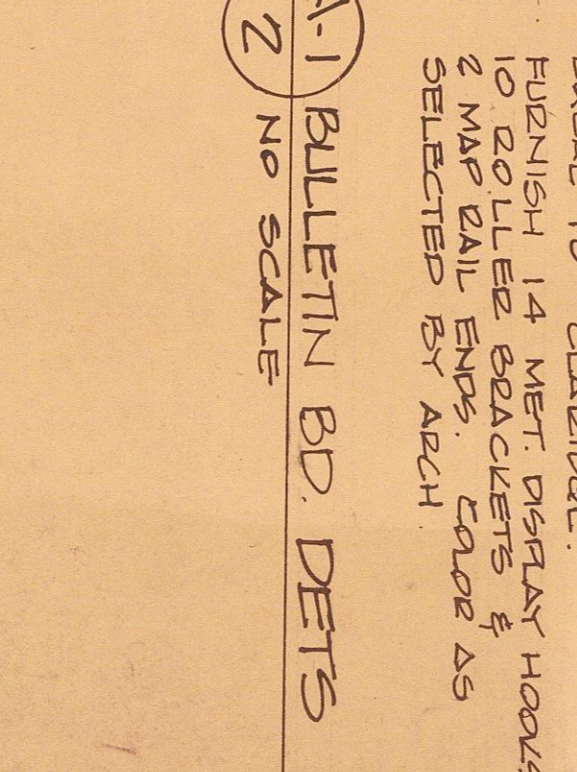 EQUAL TO "CLARIDGE".
FURNISH 14 MET. DISPLAY HOOKS
10 ROLLER BRACKETS &
2 MAP RAIL ENDS. COLOR AS
SELECTED BY ARCH
A-1 BULLETIN BD. DETS
2 NO SCALE